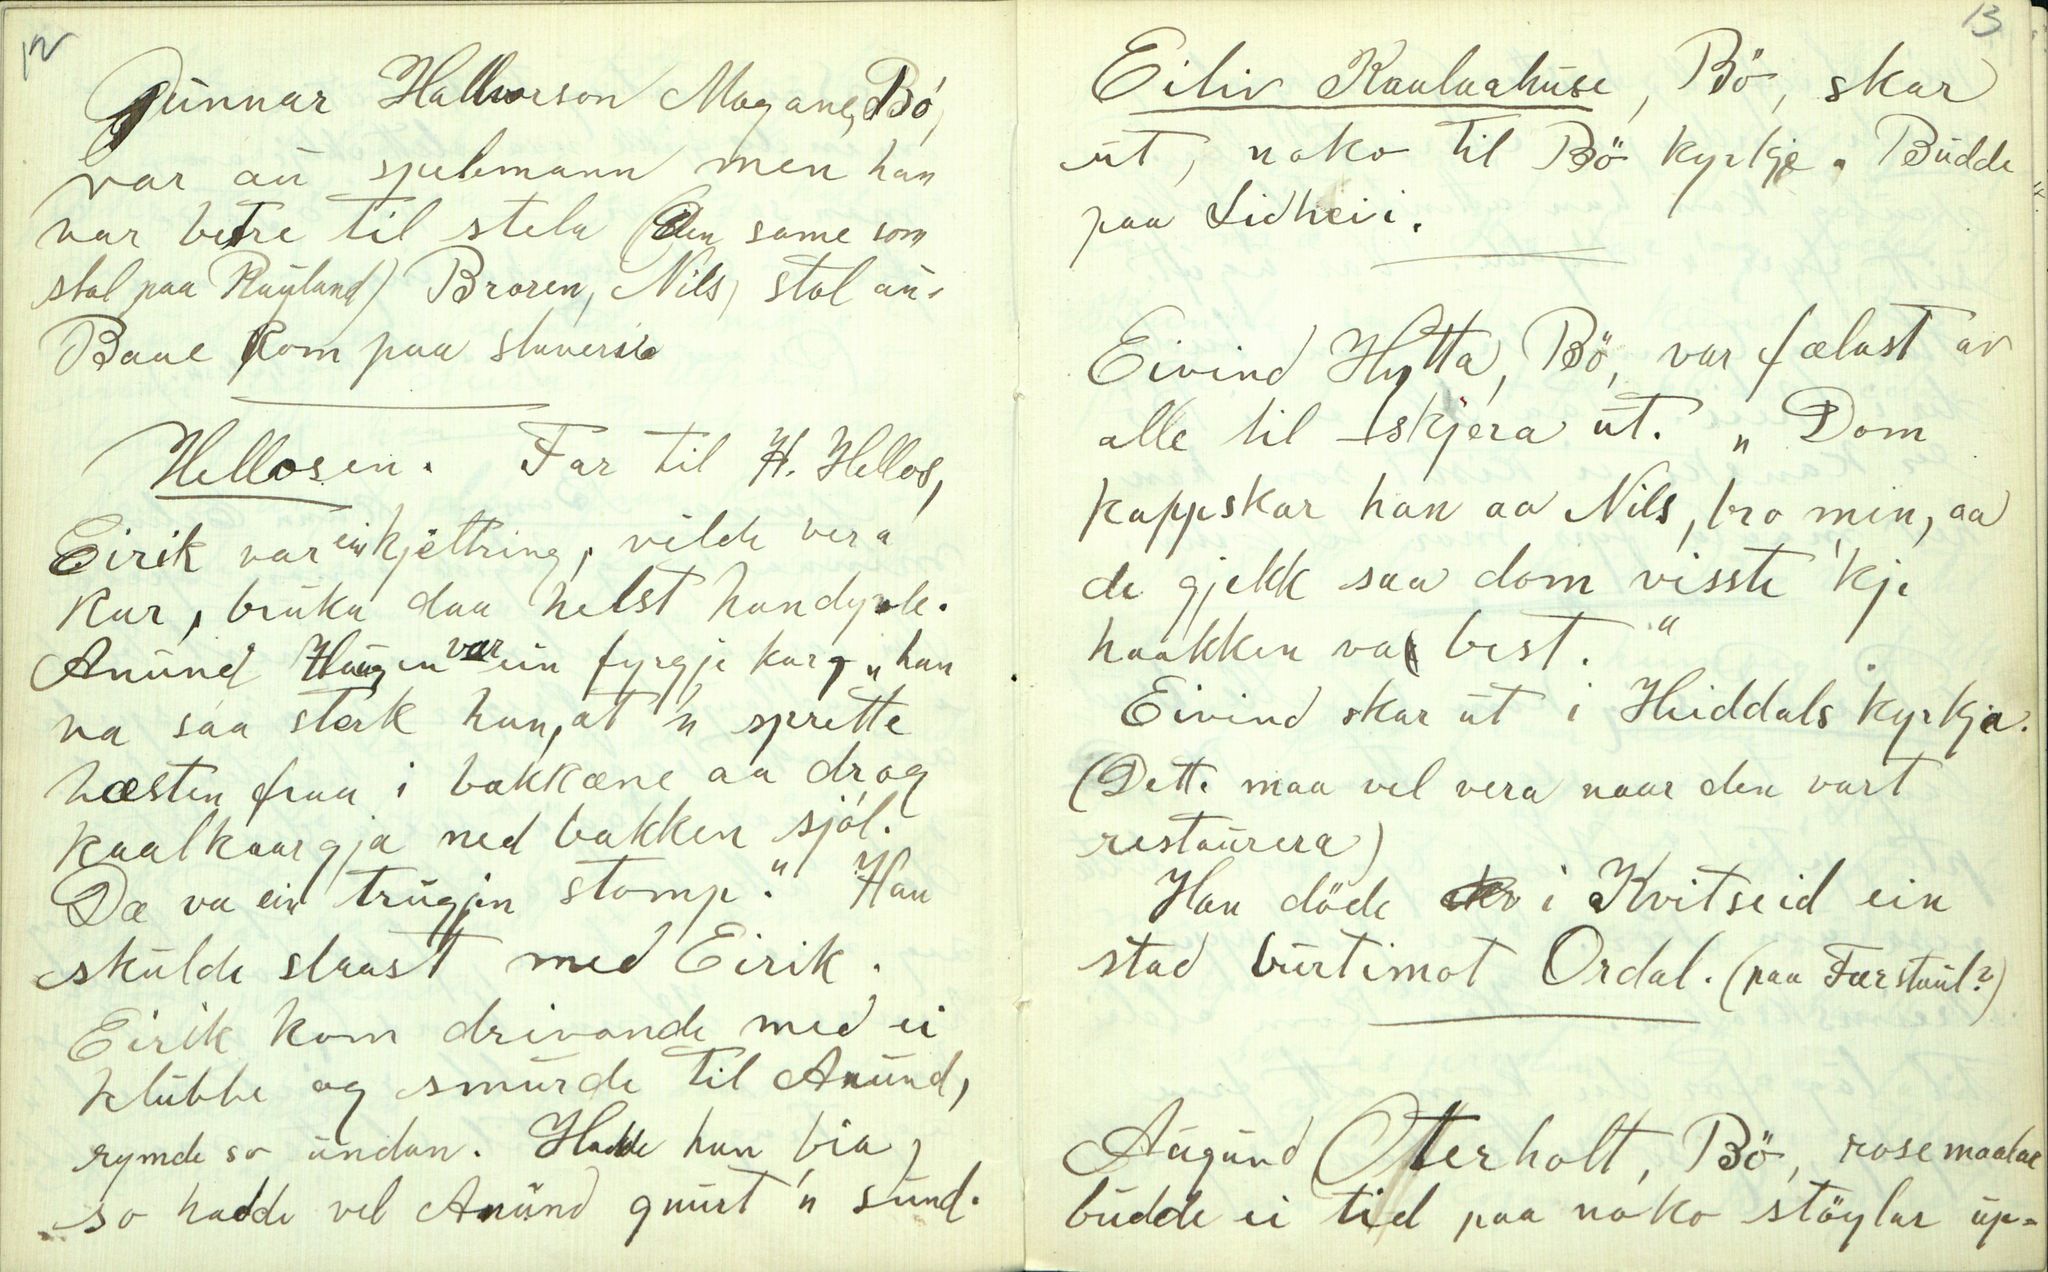 12
Gunnar Hallvorson Mogane, Bö,
var au spelemann men han
var betre til stela (Den same som
stal paa Rauland) Broren, Nils, stol au.
Baae kom paa slaveri
Hellosen. Far til H. Hellos,
Eirik var ein kjeltring, vilde vera
kar, bruka daa helst
Anund Haugen var ein fyrgje karg „han
va saa sterk han, at 'n sprette
hæsten fraa i bakkæne aa drog
kaalkaargja ned bakken sjöl.
Dæ va ein trugjin stomp." Han
skulde slaast med Eirik.
Eirik kom drivande med ei
klubbe og smurde til Anund,
rymde so undan. Hadde han bia,
so hadde vel Anund gnurt 'n sund.
13
Eiliv Kaulaahuse, Bö, skar
ut, noko til Bö kyrkje. Budde
paa Lidheii.
Eivind Hytta, Bö, var fælast av
alle til skjera ut. „Dom
kappskar han aa Nils, bro min, aa
de gjekk saa dom visste 'kje
haakken va best."
Eivind skar ut i Heiddals kyrkja.
(Dette maa vel vera naar den vart
restaurera)
Han döde i Kvitseid ein
stad burtimot Ordal. (paa Færstaul?)
Augund Oterholt, Bö, rosemaalar
budde ei tid paa noko stöylar up-